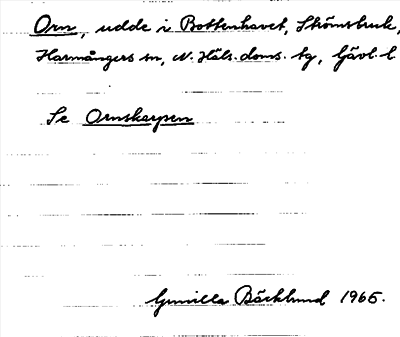 Orn, udde i Bottenhavet, Strömsbruk,
Harmångers sn, N. Häls. doms. tg, Gävl. l
Se Ornskarpen
Gunilla Bäcklund 1965.